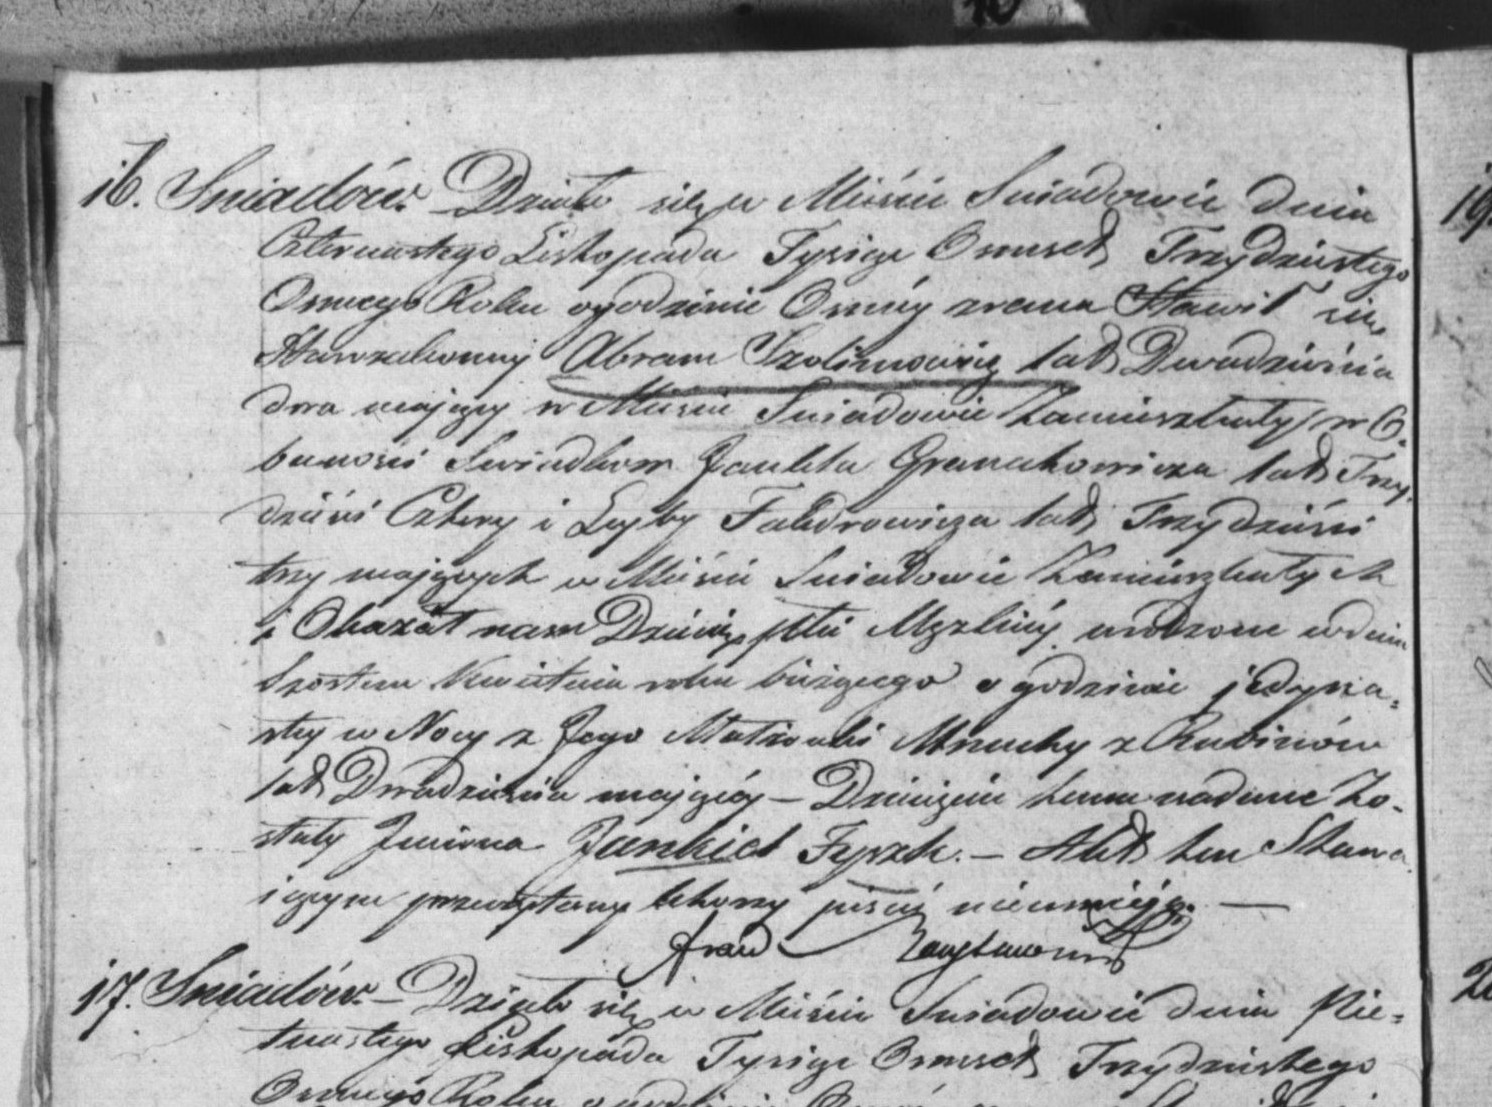 16. Sniadów. Działo się w Mieście Sniadowie dnia
Czternastego Listopada Tysiąc Osmset Trzydziestego
Osmego Roku o godzinie Osmey zrana Stawił się
Starozakonny Abram Szolimowicz lat Dwadzieścia
dwa mający w Mieście Sniadowie Zamieszkały w O-
becności Swiadków Jankla Granatowicza lat Trzy-
dzieści Cztery i Leyby Faldrowicza lat Trzydzieści
trzy mających w Mieście Sniadowie Zamieszkałych
i Okazał nam Dziecię płci Męzkiey urodzone w dniu
Szostem Kwietnia roku bieżącego o godzinie jedyna-
stey w Nocy z Jego Małżonki Mnuchy z Rubinów
lat Dwadzieścia mającey — Dziecięciu temu nadane Zo-
stały Imiona Jankiel Fyszk. — Akt ten Stawa
iącym przeczytany którzy pisać nieumieją. —
17. Sniadów. — Działo się w Mieście Sniadowie dnia Pię-
tnastego Listopada Tysiąc Osmset Trzydziestego
Osmego Roku o godzinie Osmey